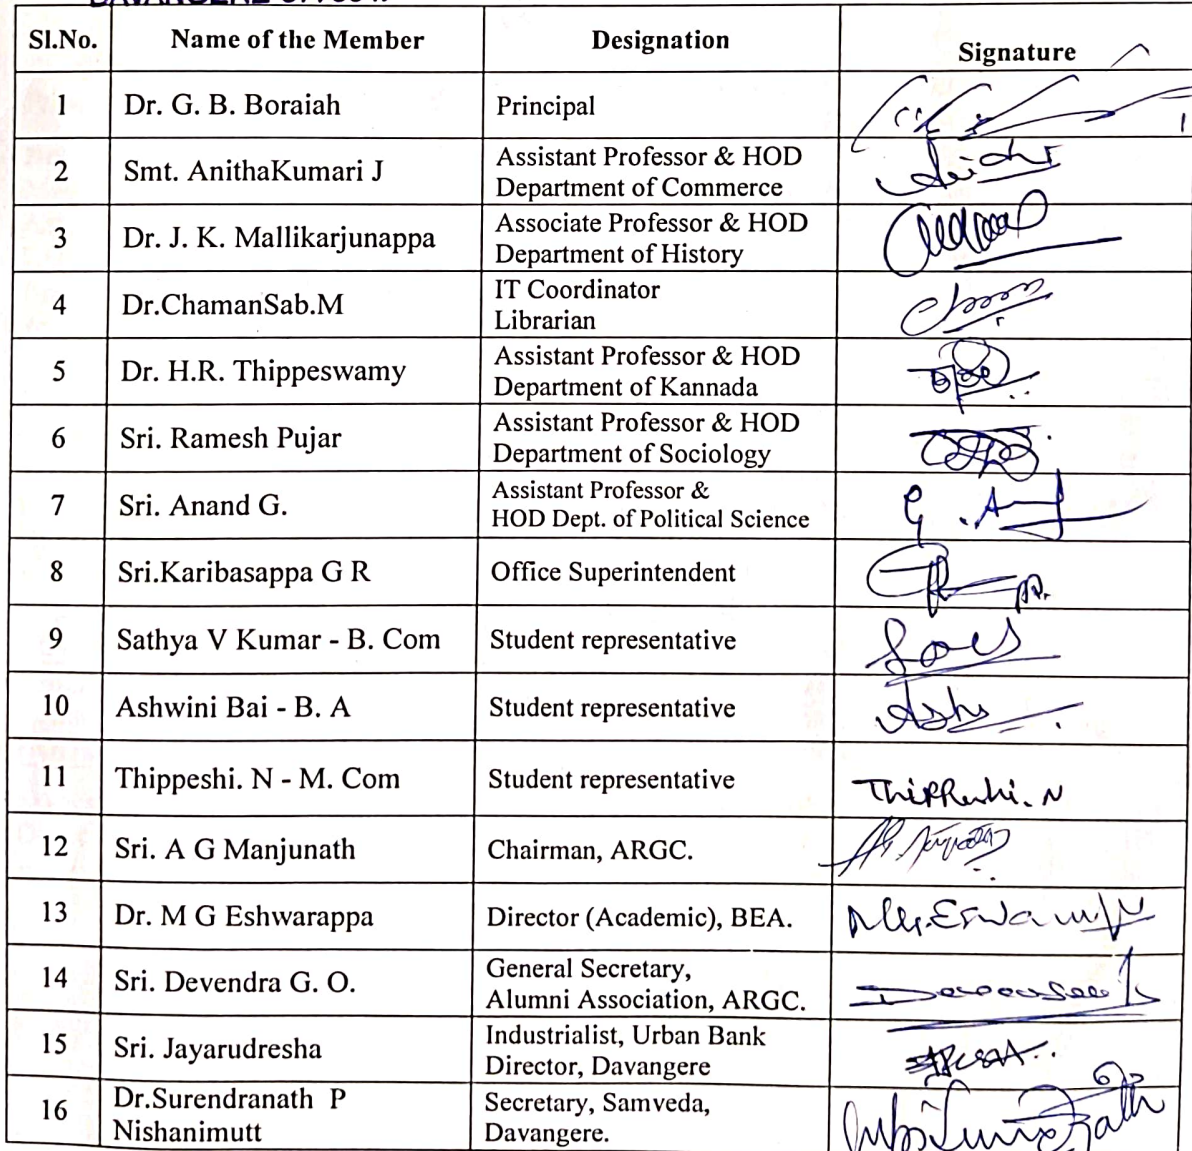 Sl.No. Name of the Member Designation Signature
1 Dr. G. B. Boraiah Principal
2 Smt. AnithaKumari J Assistant Professor & HOD
Department of Commerce
3 Dr. J. K. Mallikarjunappa Associate Professor & HOD
Department of History
4 Dr.ChamanSab.M IT Coordinator
Librarian
5 Dr. H.R. Thippeswamy Assistant Professor & HOD
Department of Kannada
6 Sri. Ramesh Pujar Assistant Professor & HOD
Department of Sociology
7 Sri. Anand G. Assistant Professor &
HOD Dept. of Political Science
8 Sri.Karibasappa G R Office Superintendent
9 Sathya V Kumar - B. Com Student representative
10 Ashwini Bai - B. A Student representative
11 Thippeshi. N - M. Com Student representative
Thippeshi. N
12 Sri. A G Manjunath Chairman, ARGC.
13 Dr. M G Eshwarappa Director (Academic), BEA.
14 Sri. Devendra G. O. General Secretary,
Alumni Association, ARGC.
15 Sri. Jayarudresha Industrialist, Urban Bank
Director, Davangere
16 Dr.Surendranath P
Nishanimutt
Secretary, Samveda,
Davangere.